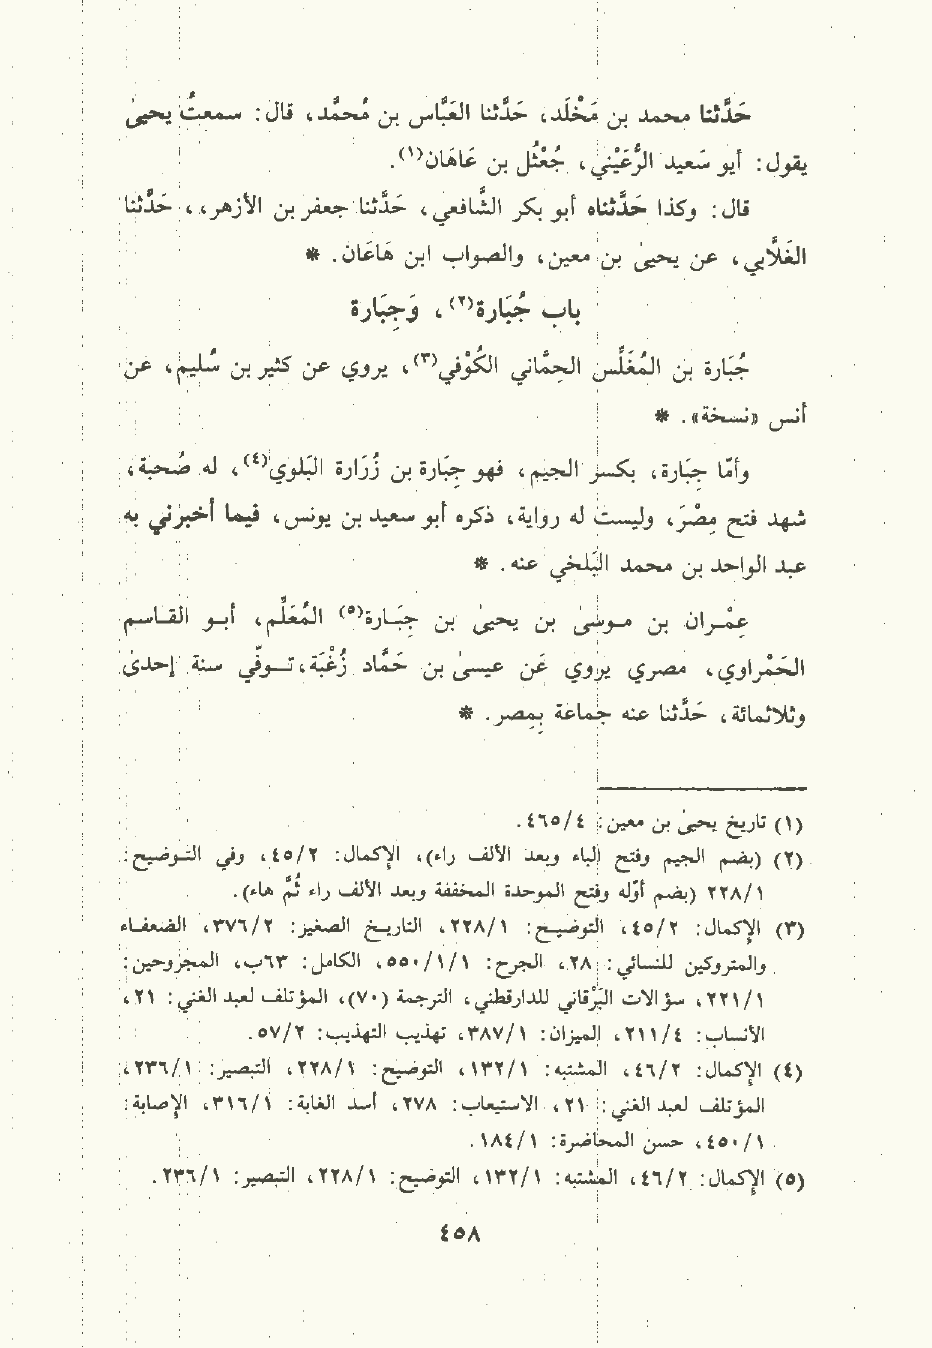 حَدَّثنا محمد بن مَخْلَد، حَدَّثنا العَبَّاس بن مُحمَّد، قال: سمعتُ يحيىٰ
يقول: أبو سعيد الرُّعَيْني، جُعْثُل بن عَاهَان(١).
قال: وكذا حَدَّثناه أبو بكر الشَّافعي، حَدَّثنا جعفر بن الأزهر، حَدَّثنا
الغَلَّابي، عن يحيىٰ بن معين، والصواب ابن هَاعَان. *
باب جُبَارة(٢)، وَجِبَارة
جُبَارة بن المُغَلِّس الحِمَّاني الكُوْفي(٣)، يروي عن كثير بن سُليم، عن
أنس «نسخة». *
وأمَّا جِبَارة، بكسر الجيم، فهو جِبَارة بن زُرَارة البَلَوي(٤)، له صُحبة،
شهد فتح مِصْرَ، وليست له رواية، ذكره أبو سعيد بن يونس، فيما أخبرني به
عبد الواحد بن محمد البَلخي عنه. *
عِمْـران بن مـوسىٰ بن يحيىٰ بن جِبَـارة(٥) المُعَلِّم، أبـو القـاسم
الحَمْراوي، مصري يروي عَن عيسىٰ بن حَمَّاد زُغْبَة، تـوفِّي سنة إحدىٰ
وثلاثمائة، حَدَّثنا عنه جماعة بمِصر. *
(١) تاريخ يحيىٰ بن معين: ٤/٤٦٥.
(٢) (بضم الجيم وفتح الباء وبعد الألف راء)، الإكمال: ٢/٤٥، وفي التـوضيح:
١/٢٢٨ (بضم أوّله وفتح الموحدة المخففة وبعد الألف راء ثُمَّ هاء).
(٣) الإكمال: ٢/٤٥، التوضيـح: ١/٢٢٨، التاريـخ الصغير: ٢/٣٧٦، الضعفـاء
والمتروكين للنسائي: ٢٨، الجرح: ١/١/٥٥٠، الكامل: ٦٣ب، المجروحين:
١/٢٢١، سؤالات البَرقاني للدارقطني، الترجمة (٧٠)، المؤتلف لعبد الغني: ٢١،
الأنساب: ٤/٢١١، الميزان: ١/٣٨٧، تهذيب التهذيب: ٢/٥٧.
(٤) الإكمال: ٢/٤٦، المشتبه: ١/١٣٢، التوضيح: ١/٢٢٨، التبصير: ١/٢٣٦،
المؤتلف لعبد الغني: ٢١، الاستيعاب: ٢٧٨، أسد الغابة: ١/٣١٦، الإصابة:
١/٤٥٠، حسن المحاضرة: ١/١٨٤.
(٥) الإكمال: ٢/٤٦، المشتبه: ١/١٣٢، التوضيح: ١/٢٢٨، التبصير: ١/٢٣٦.
٤٥٨